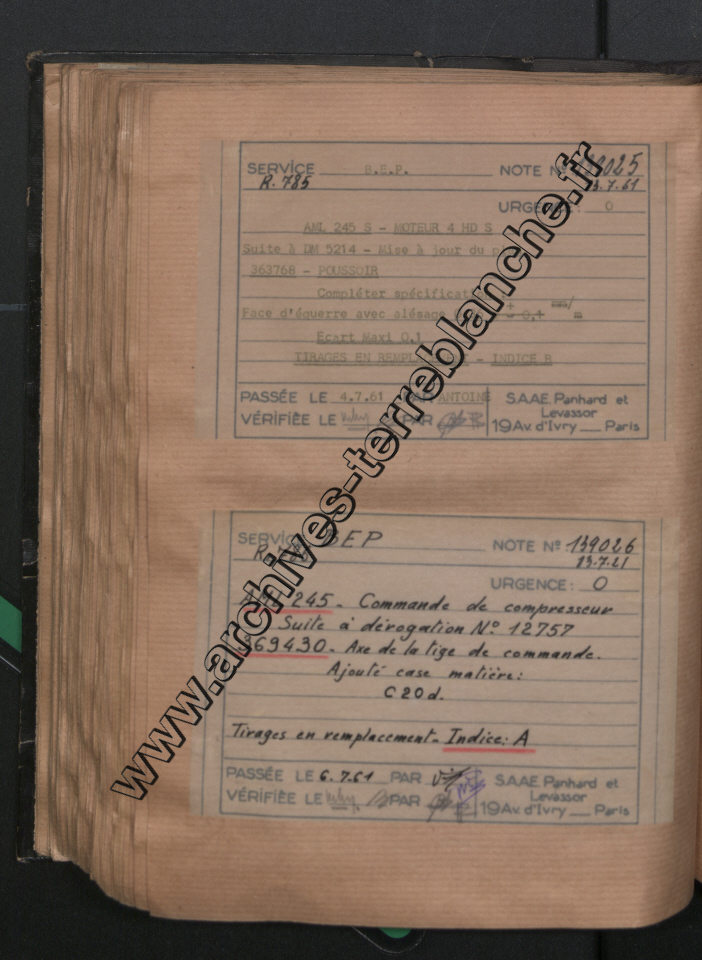 SERVICE B.E.P. NOTE Nº 139025
R.785 13.7.61
URGENCE: 0
AML 245 S - MOTEUR 4 HD S
Suite à DM 5214 - Mise à jour du
363768 - POUSSOIR
Compléter
Face d'équerre avec alésage ± 0,1 mm/m
Ecart Maxi 0,1
TIRAGES EN - INDICE B
PASSÉE LE 4.7.61 ANTOINE S.A.A.E. Panhard et
Levassor
VÉRIFIÉE LE PAR 19 Av. d'Ivry Paris
SERVICE BEP NOTE Nº 139026
R. 785 13.7.21
URGENCE: 0
AML 245 - Commande de compresseur
Suite à dérogation Nº 12757
369430 - Axe de la tige de commande.
Ajouté case matière:
C20d.
Tirages en remplacement - Indice: A
PASSÉE LE 6.7.61 PAR S.A.A.E. Panhard et
Levassor
VÉRIFIÉE LE PAR 19 Av. d'Ivry Paris
www.archives-terreblanche.fr